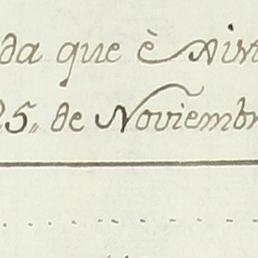 da que è
25,, de Novembr